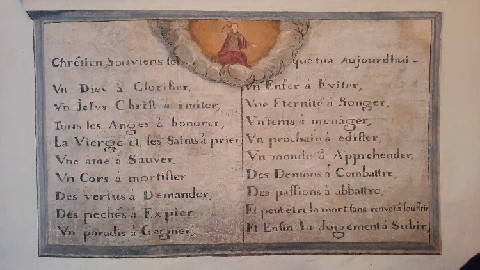 Chrétien Souviens toi
que tu a Aujourdhui -
Vn Diev à Glorifier,
Vn Jesus Christ à imiter,
Tous les Anges à honorer,
La Vierge et les Saints à prier,
Vne ame à Sauver,
Vn Cors à mortifier
Des vertus à Demander,
Des pechés à Expier
Vn paradis à Gagner,
Vn Enfer à Eviter,
Vne Eternité à Songer,
Vn tems à menager,
Vn prochain à edifier,
Vn monde à Apprehender,
Des Demons à Combattre,
Des passions à abbattre,
Et peut être la mort sans à Souffrir
Et Enfin Le Jugement à Subir,